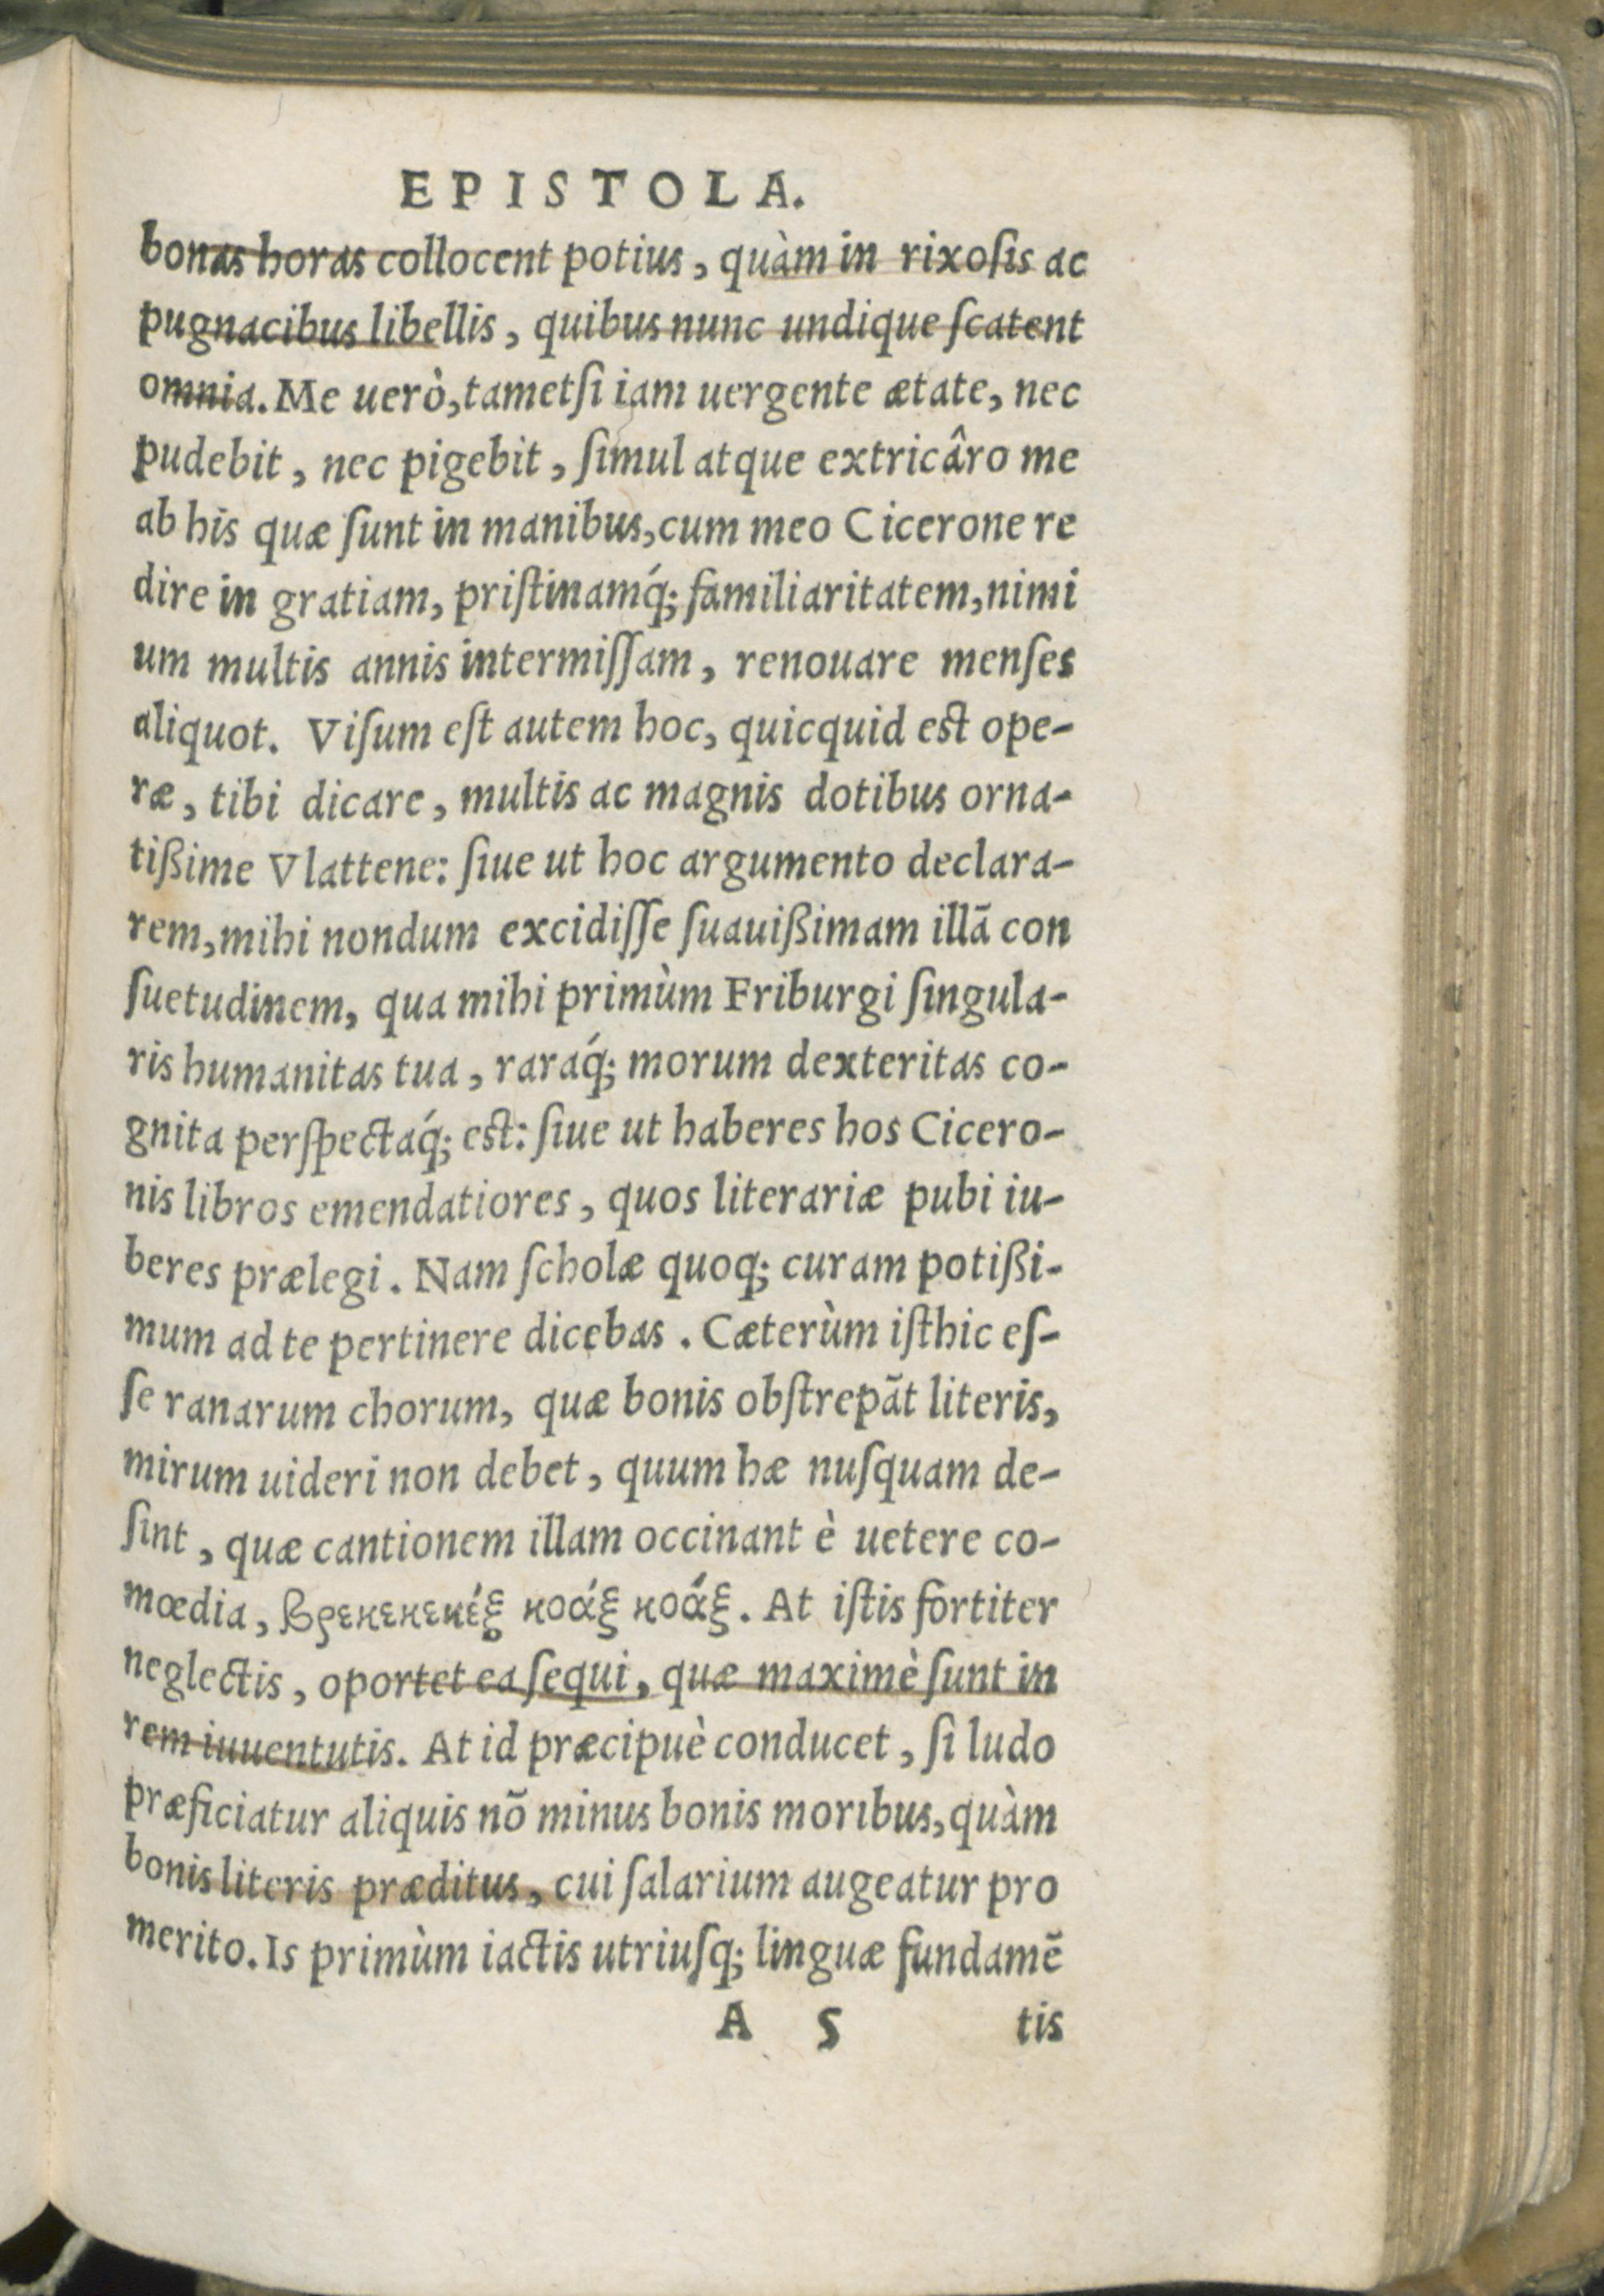 EPISTOLA.
bonas horas collocent potius, quàm in rixoſis ac
pugnacibus libellis, quibus nunc undique ſcatent
omnia. Me uerò, tametſi iam uergente ætate, nec
pudebit, nec pigebit, ſimul atque extricâro me
ab his quæ ſunt in manibus, cum meo Cicerone re
dire in gratiam, priſtinamq́; familiaritatem, nimi
um multis annis intermiſſam, renouare menſes
aliquot. Viſum eſt autem hoc, quicquid est ope-
ræ, tibi dicare, multis ac magnis dotibus orna-
tißime Vlattene: ſiue ut hoc argumento declara-
rem, mihi nondum excidiſſe ſuauißimam illã con
ſuetudinem, qua mihi primùm Friburgi ſingula-
ris humanitas tua, raraq́; morum dexteritas co-
gnita perſpectaq́; est: ſiue ut haberes hos Cicero-
nis libros emendatiores, quos literariæ pubi iu-
beres prælegi. Nam ſcholæ quoq; curam potißi-
mum ad te pertinere dicebas. Cæterùm iſthic eſ-
ſe ranarum chorum, quæ bonis obſtrepãt literis,
mirum uideri non debet, quum hæ nuſquam de-
ſint, quæ cantionem illam occinant è uetere co-
mœdia, βρεκεκεκέξ κοάξ κοάξ. At iſtis fortiter
neglectis, oportet ea ſequi, quæ maximè ſunt in
rem iuuentutis. At id præcipuè conducet, ſi ludo
præficiatur aliquis nõ minus bonis moribus, quàm
bonis literis præditus, cui ſalarium augeatur pro
merito. Is primùm iactis utriuſq; linguæ fundamẽ
A 5 tis